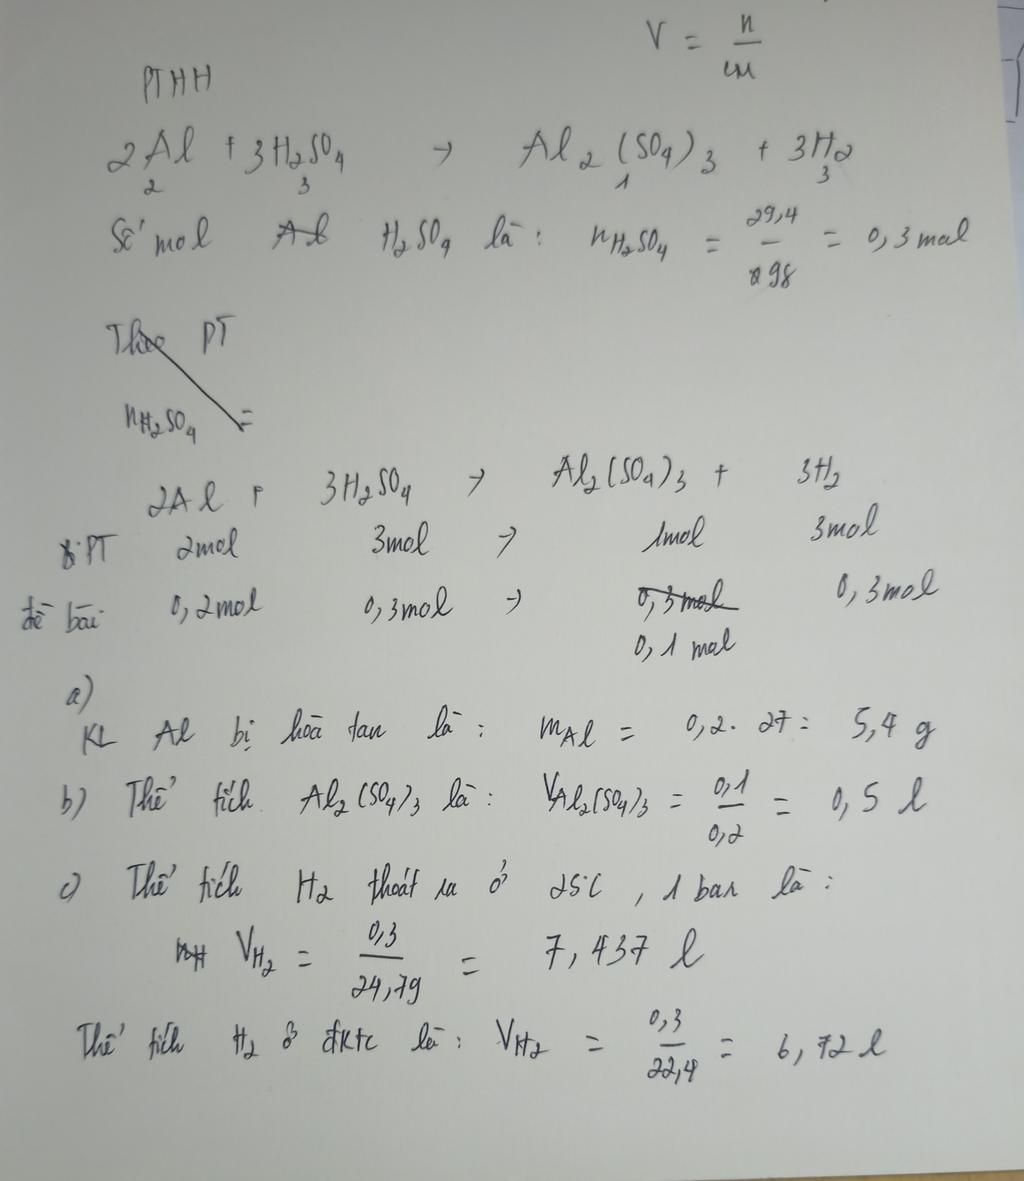 V = n / CM
PTHH
2Al + 3H₂SO₄ → Al₂(SO₄)₃ + 3H₂
2 3 1 3
Số mol Al H₂SO₄ là: nH₂SO₄ = 29,4 / 98 = 0,3 mol
Theo PT
nH₂SO₄ =
2Al + 3H₂SO₄ → Al₂(SO₄)₃ + 3H₂
PT 2mol 3mol → 1mol 3mol
đề bài 0,2mol 0,3mol → 0,3mol 0,3mol
0,1 mol
a)
KL Al bị hoà tan là: mAl = 0,2. 27 = 5,4 g
b) Thể tích Al₂(SO₄)₃ là: VAl₂(SO₄)₃ = 0,1 / 0,2 = 0,5 l
c) Thể tích H₂ thoát ra ở 25°C, 1 bar là:
nH VH₂ = 0,3 / 24,79 = 7,437 l
Thể tích H₂ ở đktc là: VH₂ = 0,3 / 22,4 = 6,72 l